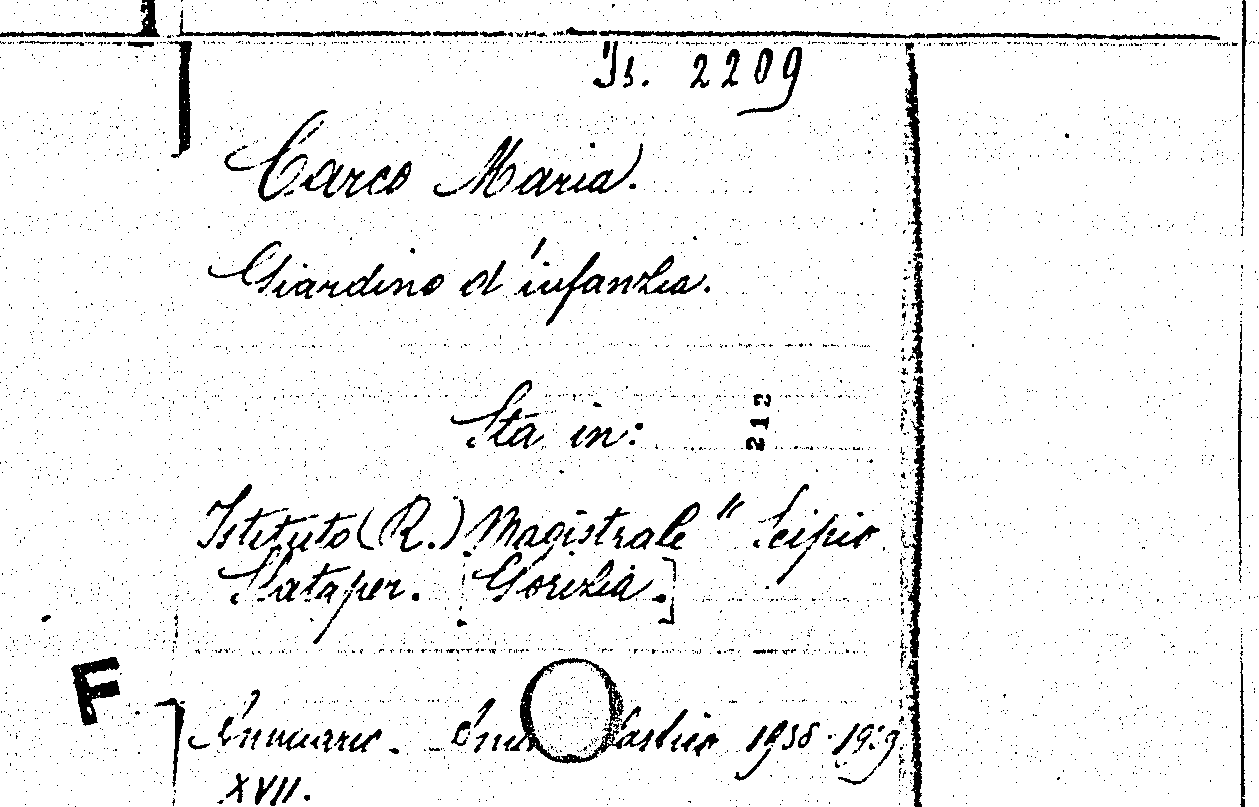 Is. 2209
Carco Maria.
Giardino d'infanzia.
Sta in:
212
Istituto (R.) Magistrale " Scipio
Slataper. [Gorizia.]
F
Annuario. 1938-1939
XVII.